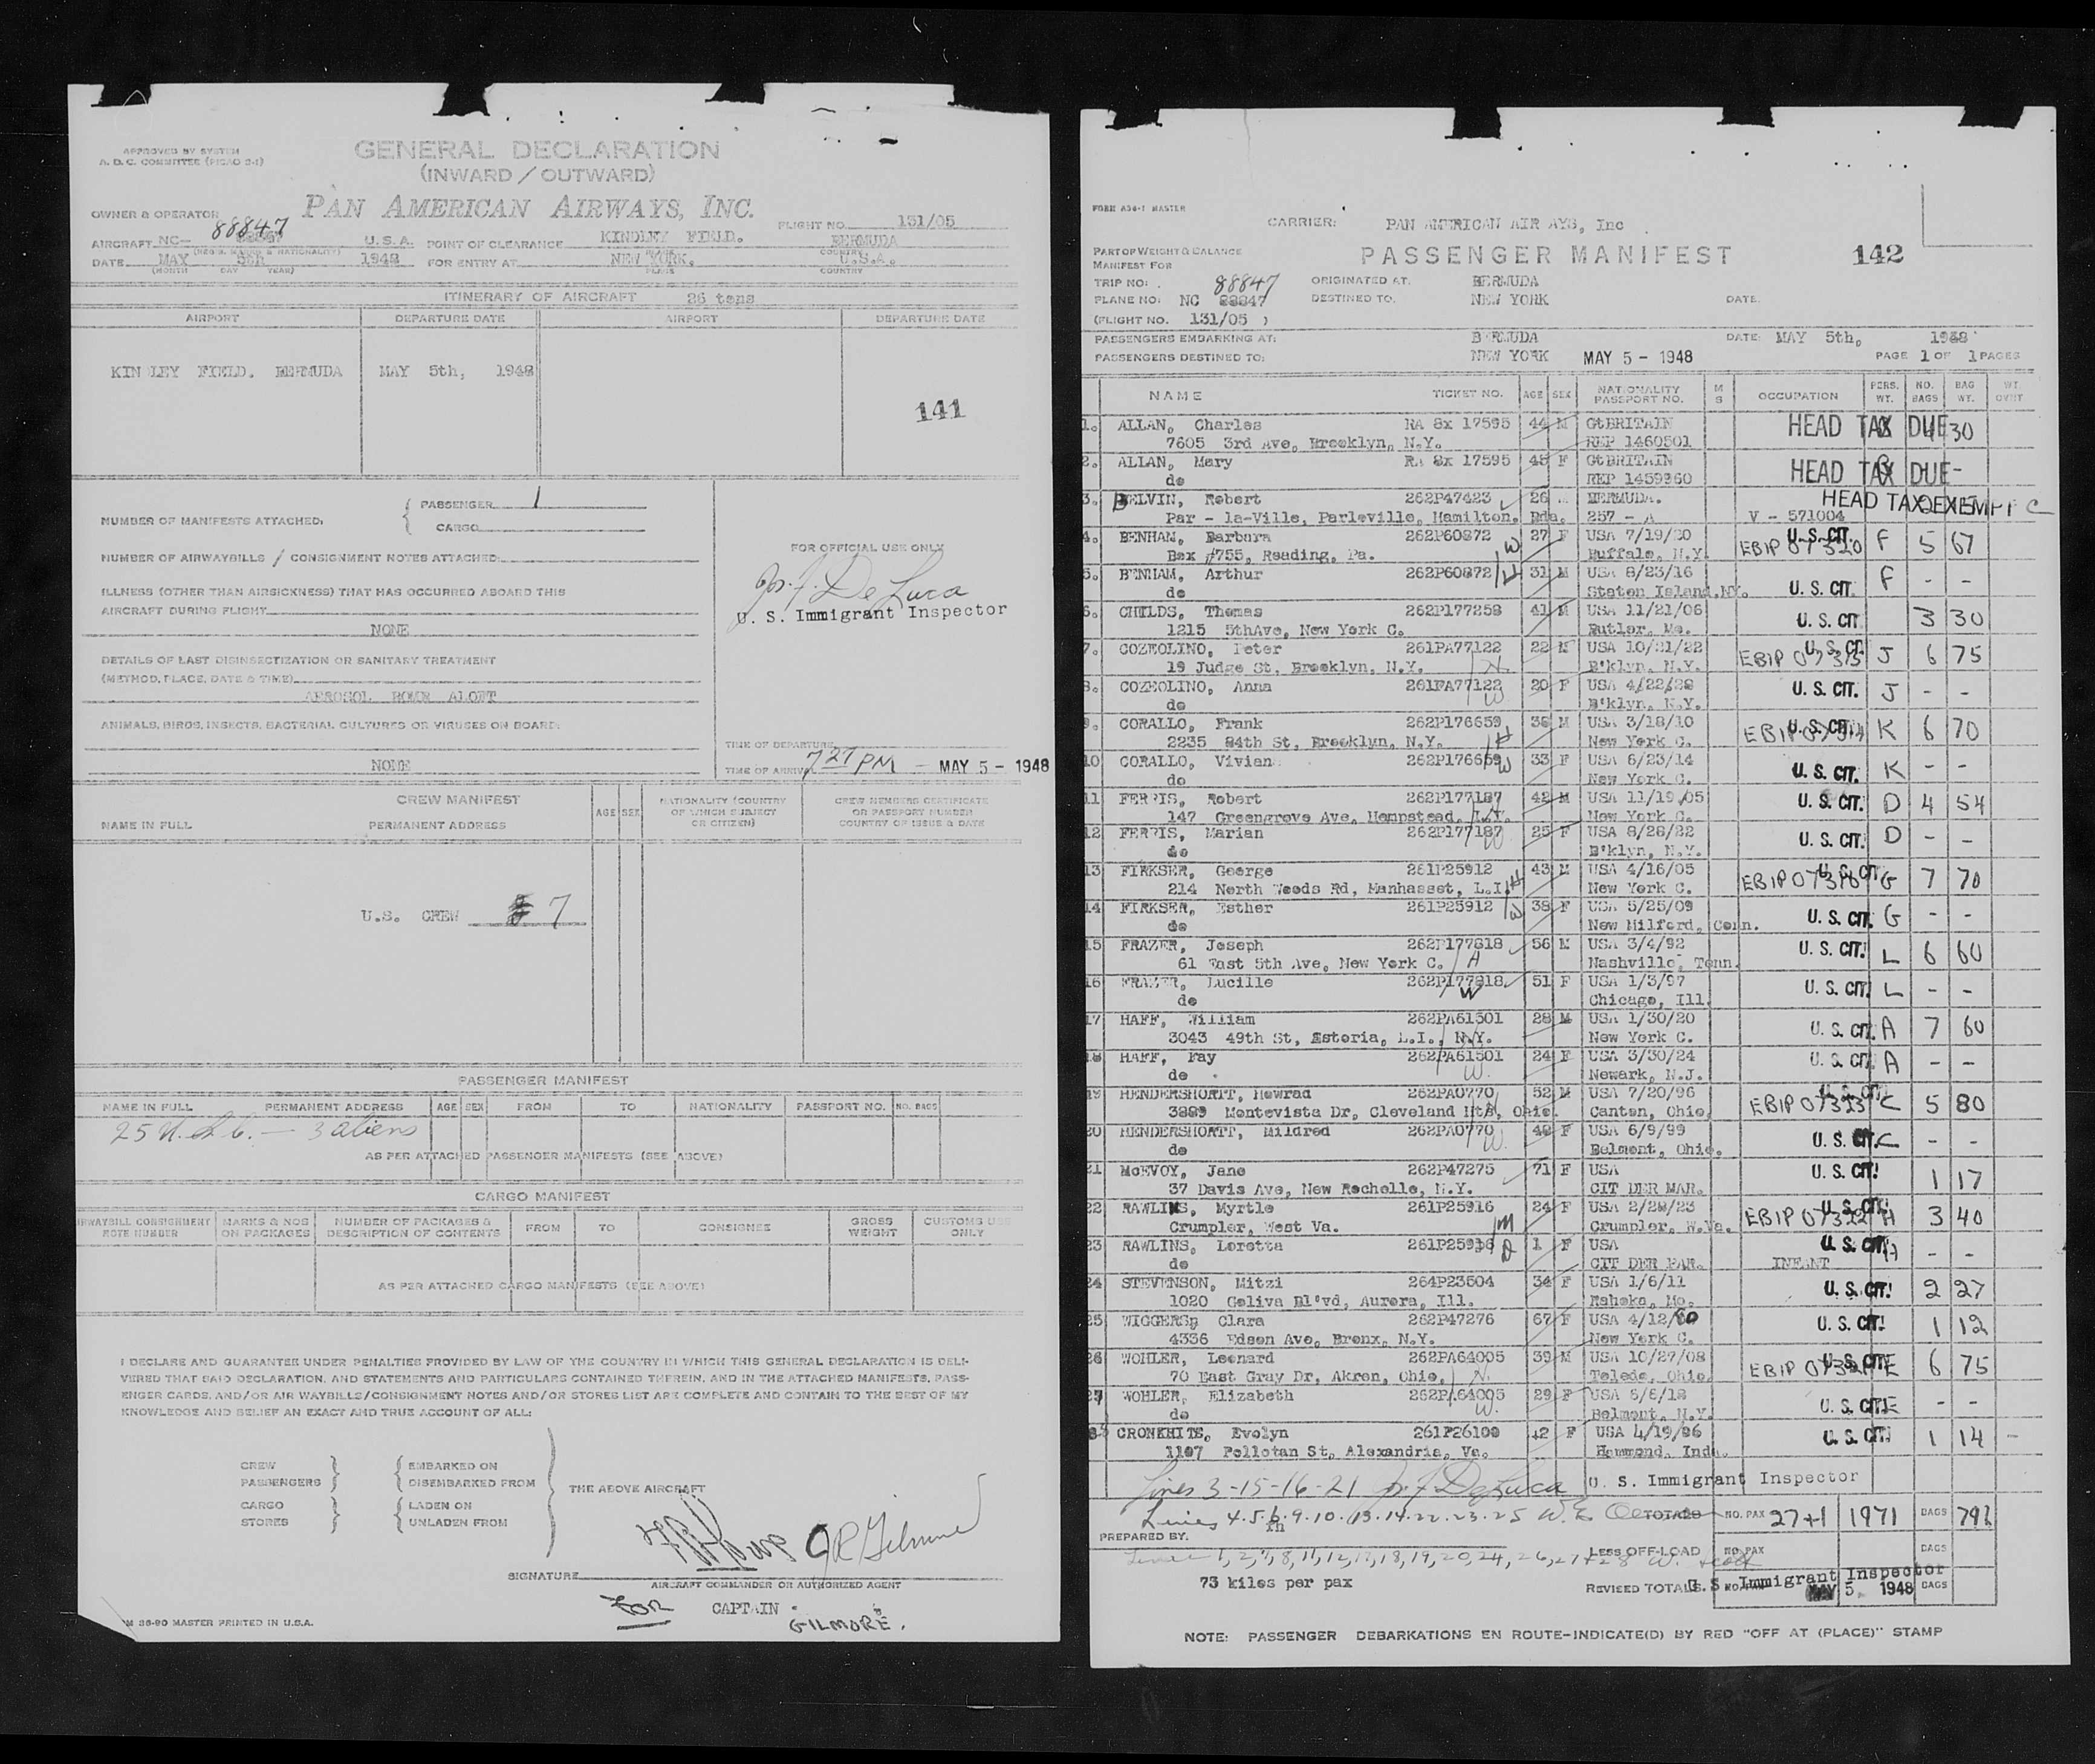 APPROVED BY SYSTEM
A. D. C. COMMITTEE (PICAO 2-1)
GENERAL DECLARATION
(INWARD / OUTWARD)
PAN AMERICAN AIRWAYS, INC.
OWNER & OPERATOR
88847
FLIGHT NO. 131/05
AIRCRAFT NC- U.S.A. POINT OF CLEARANCE KINDLEY FIELD. BERMUDA
(REG'S. MARKS & NATIONALITY) COUNTRY
DATE MAY 5th 1948 FOR ENTRY AT NEW YORK. U.S.A.
(MONTH DAY YEAR) PLACE COUNTRY
ITINERARY OF AIRCRAFT 26 tens
AIRPORT DEPARTURE DATE AIRPORT DEPARTURE DATE
KIN LEY FIELD. BERMUDA MAY 5th, 1948
141
NUMBER OF MANIFESTS ATTACHED:
PASSENGER 1
CARGO
NUMBER OF AIRWAYBILLS / CONSIGNMENT NOTES ATTACHED:
FOR OFFICIAL USE ONLY
Jos. F. De Luca
U. S. Immigrant Inspector
ILLNESS (OTHER THAN AIRSICKNESS) THAT HAS OCCURRED ABOARD THIS
AIRCRAFT DURING FLIGHT
NONE
DETAILS OF LAST DISINSECTIZATION OR SANITARY TREATMENT
(METHOD, PLACE, DATE & TIME)
AEROSOL BOMB ALOFT
ANIMALS, BIRDS, INSECTS, BACTERIAL CULTURES OR VIRUSES ON BOARD:
NONE
TIME OF DEPARTURE
TIME OF ARRIVAL 7 27 PM - MAY 5 - 1948
CREW MANIFEST
NAME IN FULL PERMANENT ADDRESS AGE SEX
NATIONALITY (COUNTRY
OF WHICH SUBJECT
OR CITIZEN)
CREW MEMBERS CERTIFICATE
OR PASSPORT NUMBER
COUNTRY OF ISSUE & DATE
U.S. CREW 7
PASSENGER MANIFEST
NAME IN FULL PERMANENT ADDRESS AGE SEX FROM TO NATIONALITY PASSPORT NO. NO. BAGS
25 U.S.C. — 3 aliens
AS PER ATTACHED PASSENGER MANIFESTS (SEE ABOVE)
CARGO MANIFEST
AIRWAYBILL CONSIGNMENT
NOTE NUMBER
MARKS & NOS
ON PACKAGES
NUMBER OF PACKAGES &
DESCRIPTION OF CONTENTS
FROM TO CONSIGNEE
GROSS
WEIGHT
CUSTOMS USE
ONLY
AS PER ATTACHED CARGO MANIFESTS (SEE ABOVE)
I DECLARE AND GUARANTEE UNDER PENALTIES PROVIDED BY LAW OF THE COUNTRY IN WHICH THIS GENERAL DECLARATION IS DELI-
VERED THAT SAID DECLARATION, AND STATEMENTS AND PARTICULARS CONTAINED THEREIN, AND IN THE ATTACHED MANIFESTS, PASS-
ENGER CARDS, AND/OR AIR WAYBILLS/CONSIGNMENT NOTES AND/OR STORES LIST ARE COMPLETE AND CONTAIN TO THE BEST OF MY
KNOWLEDGE AND BELIEF AN EXACT AND TRUE ACCOUNT OF ALL:
CREW EMBARKED ON
PASSENGERS DISEMBARKED FROM
THE ABOVE AIRCRAFT
CARGO LADEN ON
STORES UNLADEN FROM
SIGNATURE
AIRCRAFT COMMANDER OR AUTHORIZED AGENT
FOR CAPTAIN GILMORE.
M 36-90 MASTER PRINTED IN U.S.A.
FORM A36-1 MASTER
CARRIER: PAN AMERICAN AIR AYS, Inc
PART OF WEIGHT & BALANCE
MANIFEST FOR
PASSENGER MANIFEST 142
TRIP NO: 88847 ORIGINATED AT. BERMUDA
PLANE NO: NC 88847 DESTINED TO. NEW YORK DATE.
(FLIGHT NO. 131/05 )
PASSENGERS EMBARKING AT: BERMUDA DATE: MAY 5th, 1948
PASSENGERS DESTINED TO: NEW YORK MAY 5 - 1948 PAGE 1 OF 1 PAGES
NAME TICKET NO. AGE SEX NATIONALITY PASSPORT NO. M S OCCUPATION PERS. WT. NO. BAGS BAG WT. WT. OVHT
1. ALLAN, Charles RA 8x 17595 44 M GtBRITAIN HEAD TAX DUE 30
7605 3rd Ave, Brooklyn, N.Y. REP 1460501
2. ALLAN, Mary RA 8x 17595 45 F GtBRITAIN HEAD TAX DUE -
do REP 1459360
3. BELVIN, Robert 262P47423 26 BERMUDA. HEAD TAX EXEMPT C
Par - la-Ville, Parleville, Hamilton, Bda. 257 - A V - 571004
4. BENHAM, Barbara 262P60872 W 27 F USA 7/19/20 U. S. CIT. F 5 67
Box #755, Reading, Pa. Buffalo, N.Y.
5. BENHAM, Arthur 262P60872 H 31 M USA 8/23/16 U. S. CIT. F - -
do Staten Island, NY.
6. CHILDS, Thomas 262P177258 41 M USA 11/21/06 U. S. CIT 3 30
1215 5thAve, New York C. Butler, Mo.
7. COZZOLINO, Peter 261PA77122 22 M USA 10/21/22 EBIP 07315 U. S. CIT. J 6 75
19 Judge St, Brooklyn, N.Y. H B'klyn, N.Y.
8. COZZOLINO, Anna 261PA77122 20 F USA 4/22/28 U. S. CIT. J - -
do W B'klyn, N.Y.
9. CORALLO, Frank 262P176659 38 M USA 3/18/10 U. S. CIT. K 6 70
2235 84th St, Brooklyn, N.Y. H New York C.
10 CORALLO, Vivian 262P176659 W 33 F USA 6/23/14 U. S. CIT. K - -
do New York C.
11 FERRIS, Robert 262P177187 42 M USA 11/19/05 U. S. CIT. D 4 54
147 Greengrove Ave, Hempstead, L.I. New York C.
12 FERRIS, Marian 262P177187 25 F USA 8/28/22 U. S. CIT. D - -
do W B'klyn, N.Y.
13 FIRKSER, George 261P25912 43 M USA 4/16/05 U. S. CIT G 7 70
214 North Woods Rd, Manhasset, L.I. H New York C.
14 FIRKSER, Esther 261P25912 W 38 F USA 5/25/09 U. S. CIT. G - -
do New Milford, Conn.
15 FRAZER, Joseph 262P177818 56 M USA 3/4/92 U. S. CIT. L 6 60
61 East 5th Ave, New York C. H Nashville, Tenn.
16 FRAZER, Lucille 262P177818 51 F USA 1/3/97 U. S. CIT. L - -
do W Chicago, Ill.
17 HAFF, William 262PA61501 28 M USA 1/30/20 U. S. CIT. A 7 60
3043 49th St, Astoria, L.I., N.Y. New York C.
18 HAFF, Fay 262PA61501 24 F USA 3/30/24 U. S. CIT. A - -
do W. Newark, N.J.
19 HENDERSHOATT, Howrad 262PA0770 52 M USA 7/20/96 EBIP 07323 C 5 80
3889 Montevista Dr, Cleveland Hts, Ohio. Canton, Ohio,
20 HENDERSHOATT, Mildred 262PA0770 48 F USA 6/9/99 U. S. CIT. C - -
do W. Belmont, Ohio.
21 McEVOY, Jane 262P47275 71 F USA U. S. CIT. 1 17
37 Davis Ave, New Rochelle, N.Y. CIT DER MAR.
22 RAWLINS, Myrtle 261P25916 24 F USA 2/28/23 EBIP 07322 U. S. CIT. H 3 40
Crumpler, West Va. M Crumpler, W.Va.
23 RAWLINS, Loretta 261P25916 D 1 F USA U. S. CIT. H - -
do CIT DER PAR. INFANT
24 STEVENSON, Mitzi 264P23504 34 F USA 1/6/11 U. S. CIT. 2 27
1020 Goliva Bl'vd, Aurora, Ill. Kahoka, Mo.
25 WIGGERS, Clara 262P47276 67 F USA 4/12/80 U. S. CIT. 1 12
4336 Edson Ave, Bronx, N.Y. New York C.
26 WOHLER, Leonard 262PA64005 39 M USA 10/27/08 U. S. CIT E 6 75
70 East Gray Dr, Akron, Ohio. H. Toledo, Ohio.
27 WOHLER, Elizabeth 262PA64005 29 F USA 5/6/18 U. S. CIT. E - -
do W. Belmont, N.Y.
28 CRONKHITE, Evelyn 261P26100 42 F USA 4/19/06 U. S. CIT. 1 14 -
1107 Pollotan St, Alexandria, Va. Hammond, Inda.
Lines 3-15-16-21 Jos. F. De Luca U. S. Immigrant Inspector
Lines 4.5.6.9.10.13.14.22.23.25 TOTALS NO. PAX 27+1 1971 BAGS 791
PREPARED BY.
Lines 1, 2, 7, 8, 11, 12, 17, 18, 19, 20, 24, 26, 27 + 28 LESS OFF-LOAD NO. PAX BAGS
73 kilos per pax REVISED TOTALS U. S. Immigrant Inspector
MAY 5. 1948 BAGS
NOTE: PASSENGER DEBARKATIONS EN ROUTE-INDICATE(D) BY RED "OFF AT (PLACE)" STAMP